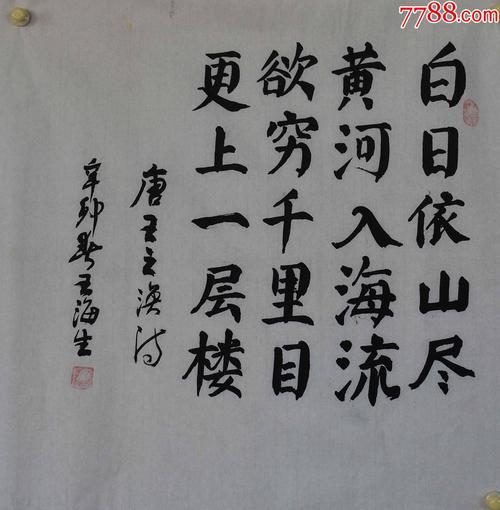 白日依山尽
黄河入海流
欲穷千里目
更上一层楼
唐王之涣诗
辛卯春王海生
7788.com